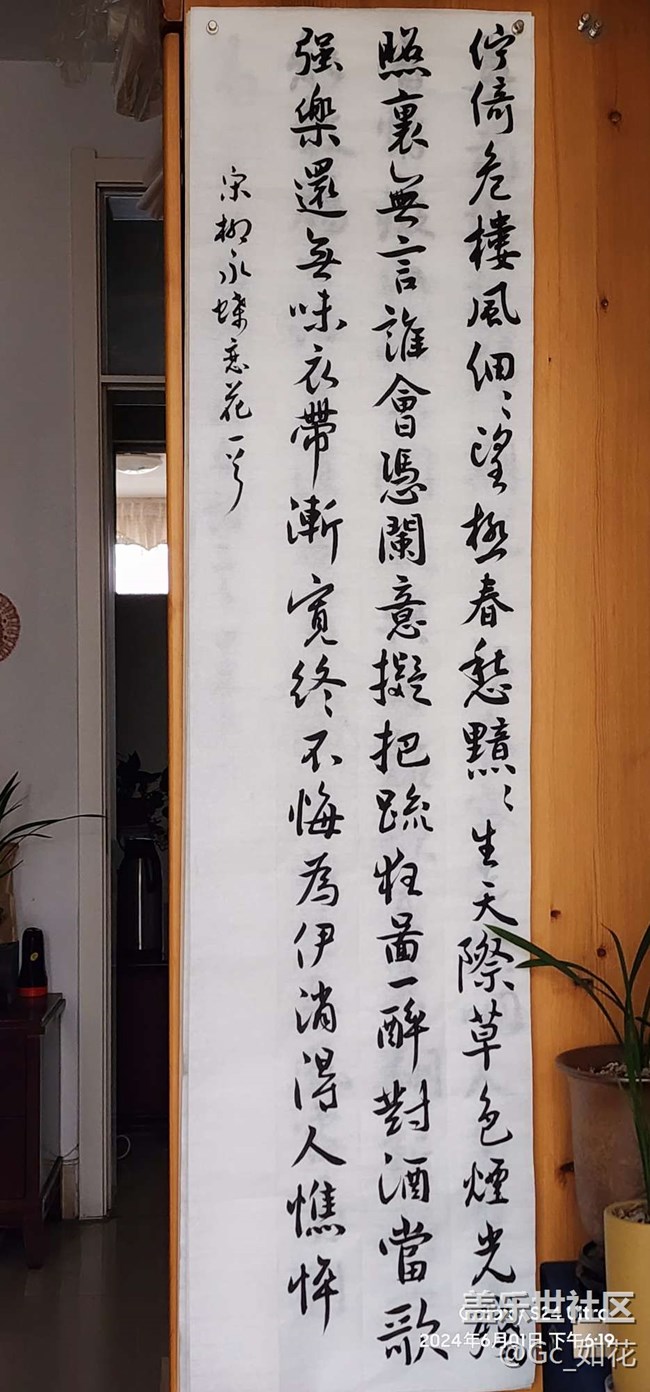 佇倚危樓風細〻望極春愁黯〻生天際草色煙光殘
照裏無言誰會憑闌意擬把疏狂啚一醉對酒當歌
强樂還無味衣帶漸寬終不悔為伊消得人憔悴
宋柳永蝶恋花一首
盖乐世社区
Galaxy S24 Ultra
2024年6月01日 下午6:19
@Gc_如花